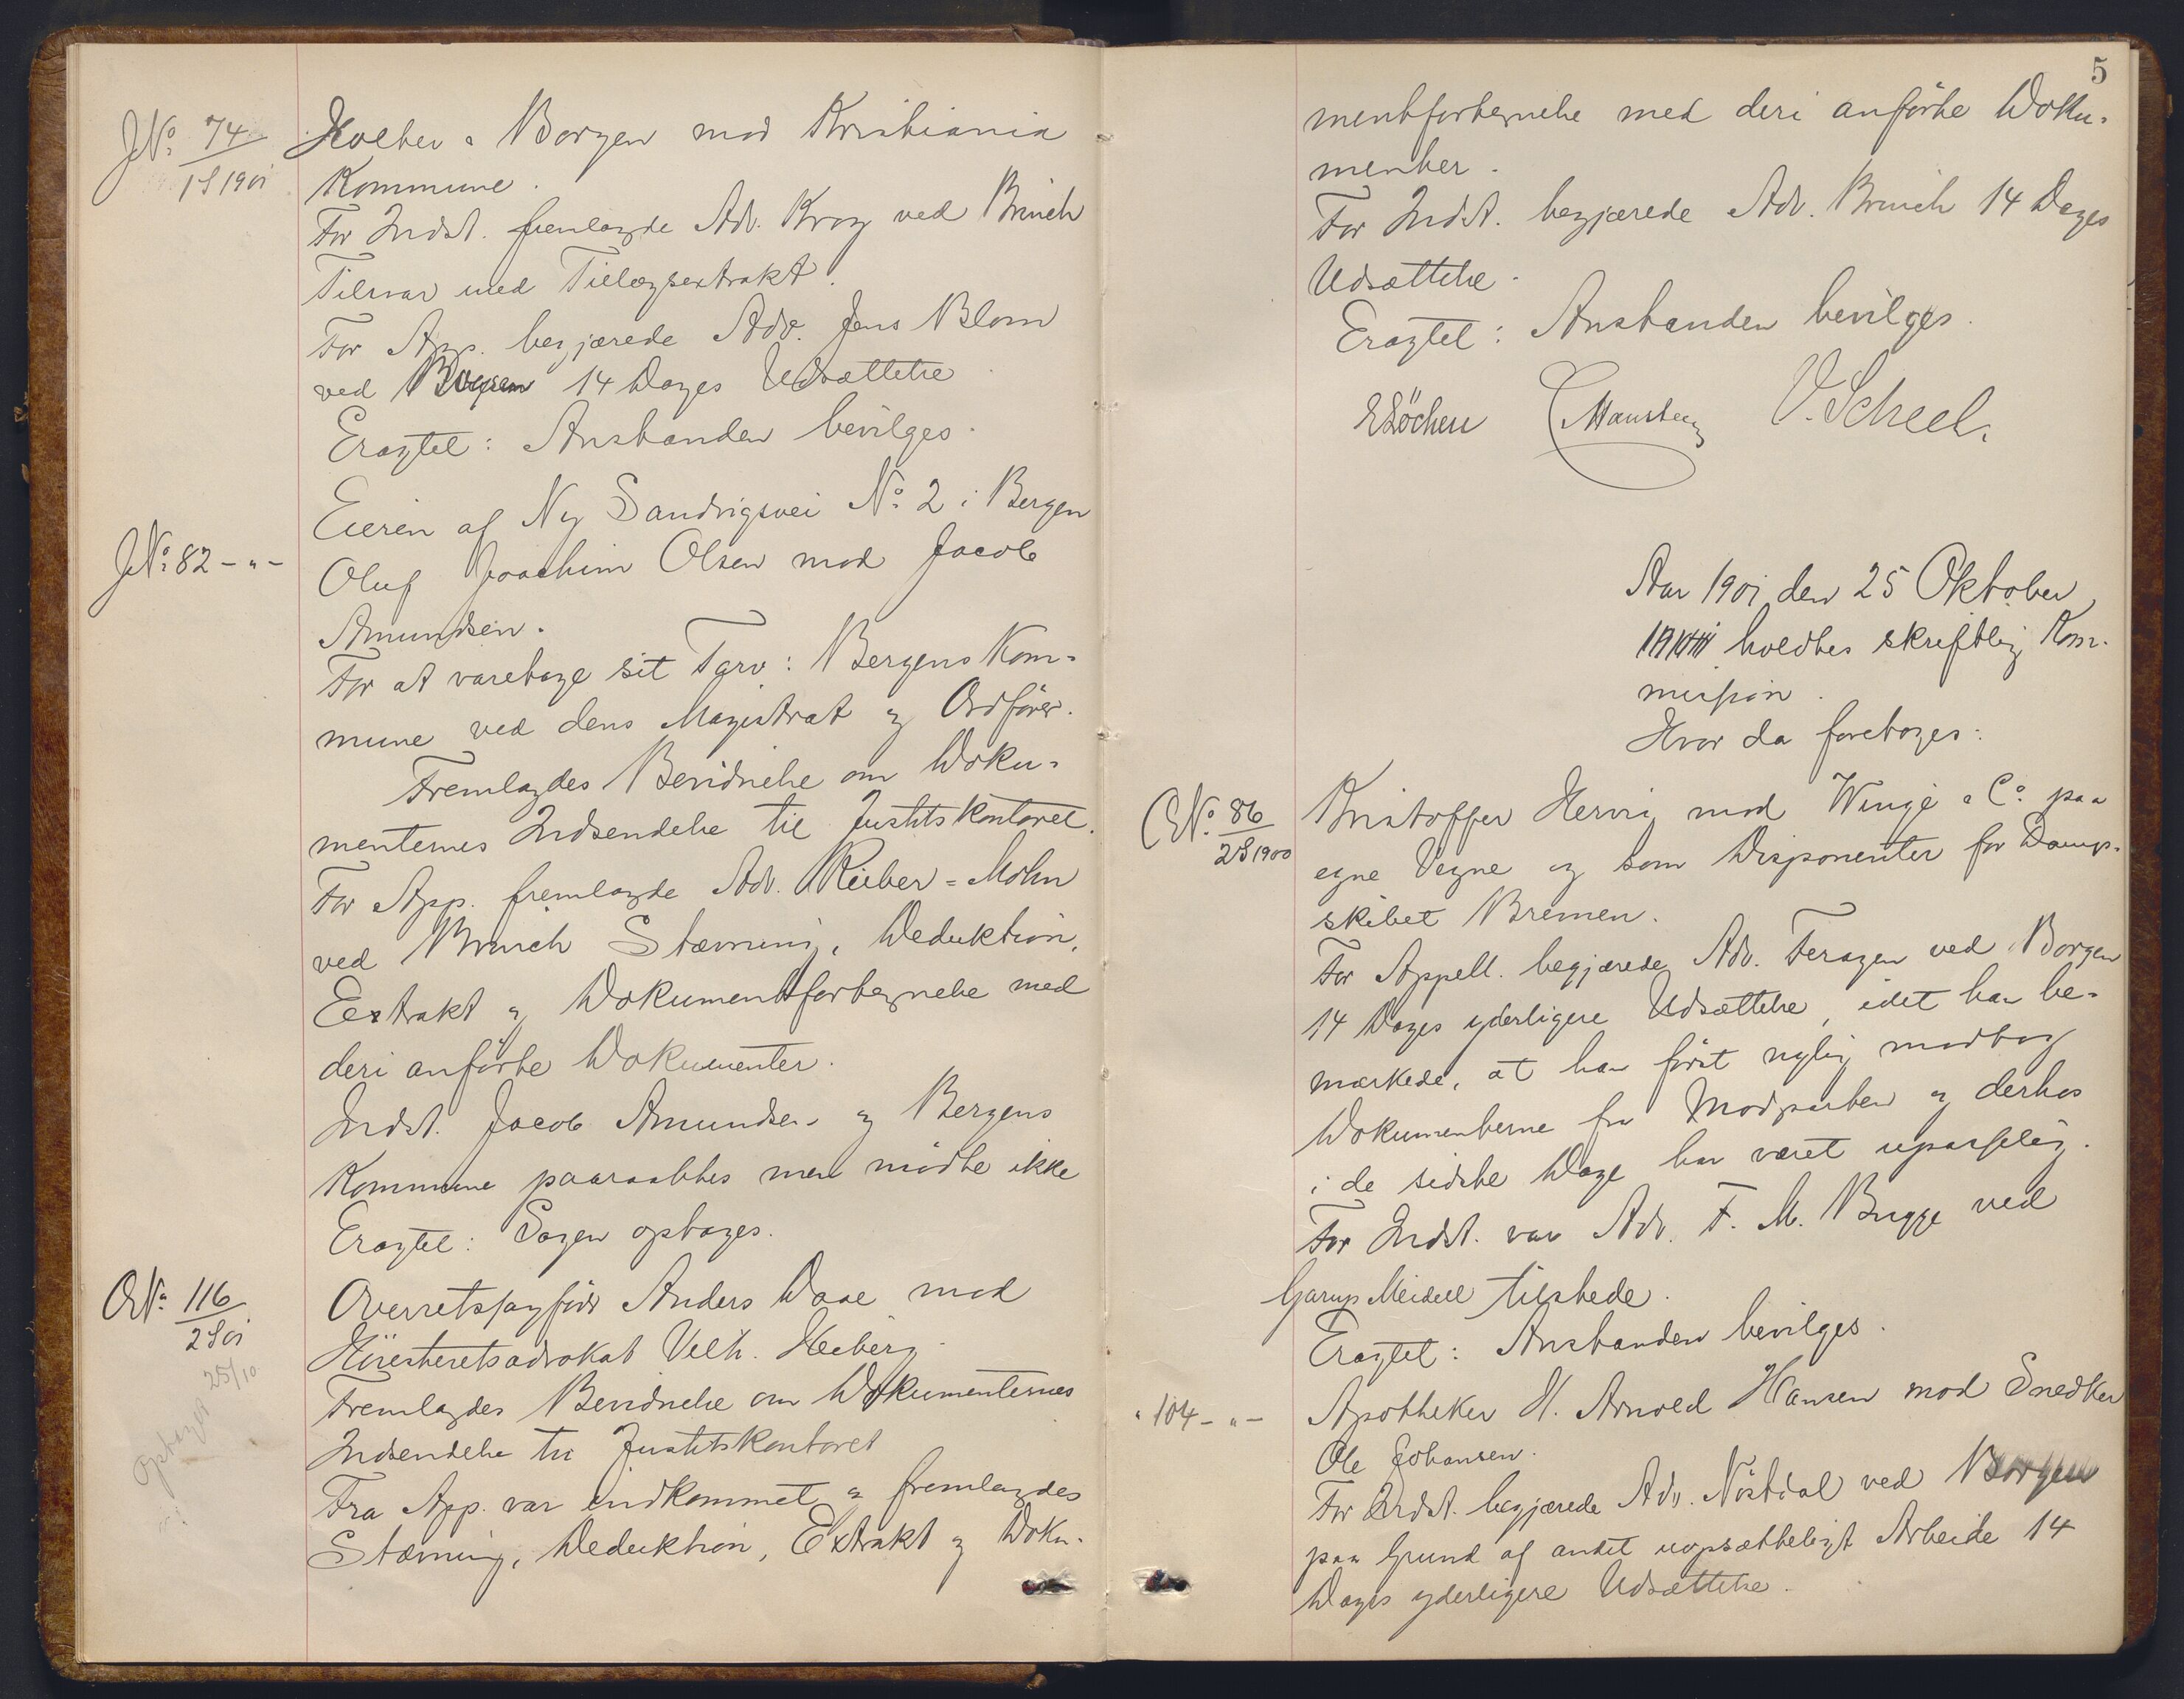 JNo. 74
1 S 1901
Holter & Borgen mod Kristiania
Kommune.
For Indst. fremlagde Adv. Krag ved Bruch
Tilsvar med Tillægsextrakt.
For App. begjærede Adv. Jens Blom
ved 14 Dages Udsættelse
Eragtet: Anstanden bevilges.
JNo. 82 - " -
Eieren af Ny Sandvigsvei No. 2 i Bergen
Oluf Joachim Olsen mod Jacob
Amundsen.
For at varetage sit Tarv: Bergens Kom-
mune ved dens Magistrat og Ordfører.
Fremlagdes Bevidnelse om Doku-
menternes Indsendelse til Justitskontoret.
For App. fremlagde Adv. Rieber-Mohn
ved Bruch Stævning, Deduktion,
Extrakt og Dokumentfortegnelse med
deri anførte Dokumenter.
Indst. Jacob Amundsen og Bergens
Kommune paaraabtes men mødte ikke
Eragtet: Sagen optages.
No. 116
2 S 01
Optages 25/10
Overretssagfører Anders Daae mod
Høiesteretsadvokat Vilh. Heiberg
Fremlagdes Bevidnelse om Dokumenternes
Indsendelse til Justitskontoret
Fra App. var indkommet og fremlagdes
Stævning, Deduktion, Extrakt og Doku-
5
mentfortegnelse med deri anførte Doku-
menter.
For Indst. begjærede Adv. Bruch 14 Dages
Udsættelse.
Eragtet: Anstanden bevilges.
E Löchen V. Scheel.
Aar 1901 den 25 Oktober
holdtes skriftlig Kom-
mission.
Hvor da foretoges:
No. 86
2 S 1900
Kristoffer Hervig mod Winge & Co. paa
egne Vegne og som Disponenter for Damp-
skibet Bremen.
For Appell. begjærede Adv. Feragen ved Borgen
14 Dages yderligere Udsættelse, idet han be-
mærkede, at han først nylig modtog
Dokumenterne fra Modparten og derhos
i de sidste Dage har været upasselig.
For Indst. var Adv. F. M. Bugge ved
Garup Meidell tilstede.
Eragtet: Anstanden bevilges.
" 104 - " -
Apotheker H. Arnold Hansen mod Snedker
Ole Johansen.
For Indst. begjærede Adv. Nöstdal ved Borgen
paa Grund af andet uopsætteligt Arbeide 14
Dages yderligere Udsættelse.